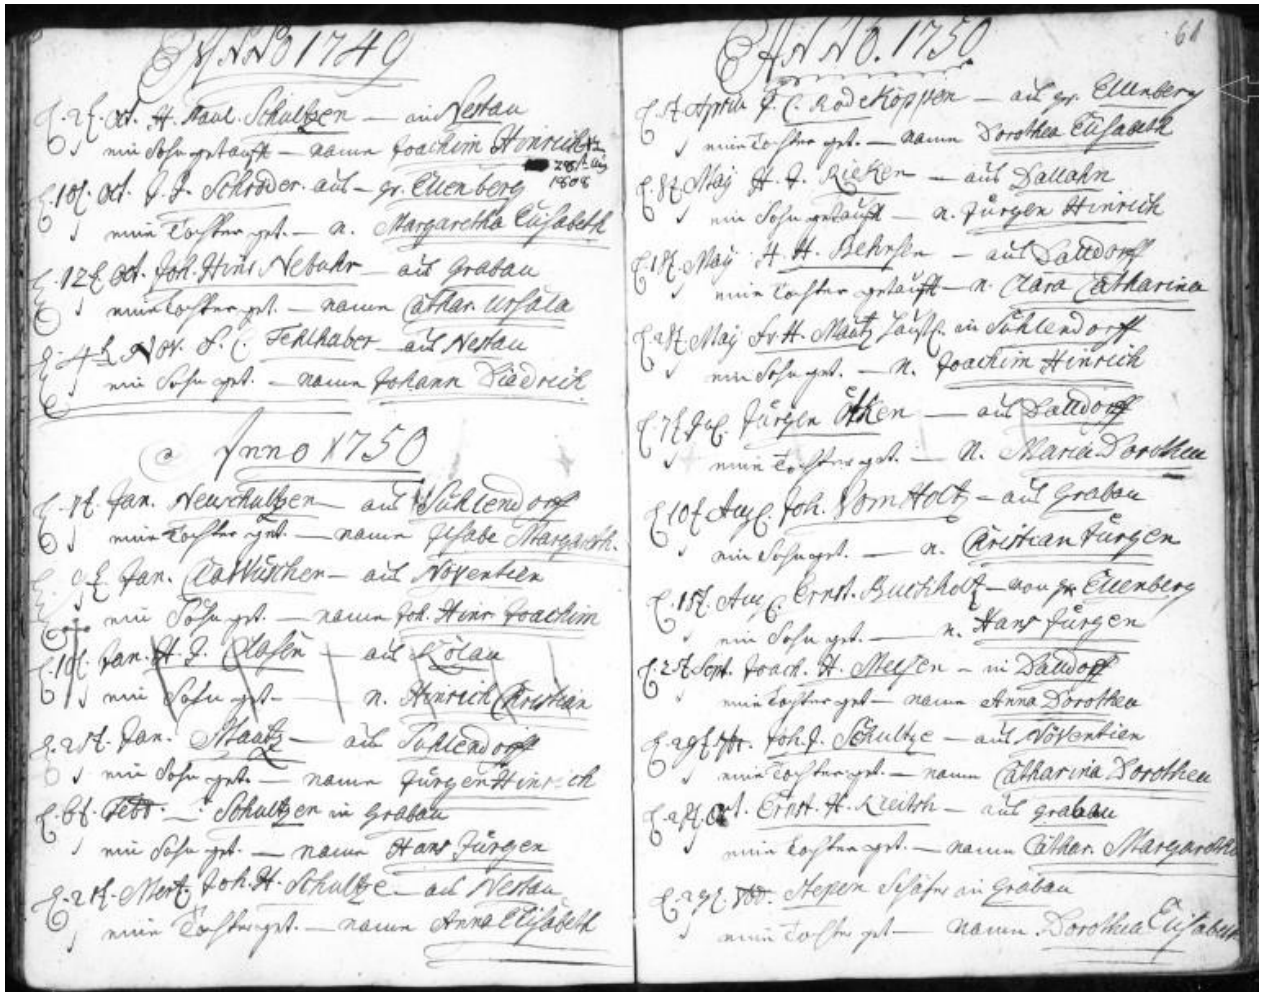 ANNO 1749
Oct. H. Paul Schultzen — in Nestau
ein Sohn getauft — namen Joachim Hinrich
1808
Oct. J. J. Schröder aus — gr. Ellenberg
eine Tochter get. — n. Margaretha Elisabeth
Oct. Joh. Hinr Nebuhr — aus Grabau
eine Tochter get. — namen Cathar. Ursula
Nov. Fehlhaber — aus Nestau
ein Sohn get. — namen Johann Diedrich
Anno 1750
Jan. Neuschultzen — aus Suhlendorff
eine Tochter get. — namen Ilsabe Margareth.
Jan. — aus Növentien
ein Sohn get. — namen Joh. Hinr Joachim
Jan. H. J. Clasen — aus Kölau
ein Sohn get. — n. Hinrich Christian
Jan. Maatz — aus Suhlendorff
ein Sohn get. — namen Jürgen Hinrich
Febr. — Schultzen in Grabau
ein Sohn get. — namen Hans Jürgen
Mert. Joh. H. Schultze — aus Nestau
eine Tochter get. — namen Anna Elisabeth
ANNO. 1750
61
April J. C. Rodeköppen — aus gr. Ellenberg
eine Tochter get. — namen Dorothea Elisabeth
Maij H. J. Rieken — aus Dallahn
ein Sohn getauft — n. Jürgen Hinrich
Maij H. H. Behnsen — aus Dalldorff
eine Tochter getauft — n. Clara Catharina
Maij H. Maatz in Suhlendorff
ein Sohn get. — n. Joachim Hinrich
Jürgen Ötken — aus Dalldorff
eine Tochter get. — n. Maria Dorothea
Aug. Joh. VomHoltz — aus Grabau
ein Sohn get. — n. Christian Jürgen
Aug. Ernst. Buchholtz — von gr. Ellenberg
ein Sohn get. — n. Hans Jürgen
Sept. Joach. H. Meysen — in Dalldorff
eine Tochter get — namen Anna Dorothea
Joh. J. Schultze — aus Növentien
eine Tochter get. — namen Catharina Dorothea
Oct. Ernst. H. — aus Grabau
eine Tochter get. — namen Cathar. Margaretha
Stepen Schäfer in Grabau
eine Tochter get — namen Dorothea Elisabeth